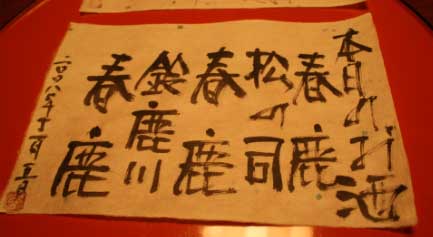 本日のお酒
春鹿
松の司
春鹿
鈴鹿川
春鹿
二〇〇八年十一月